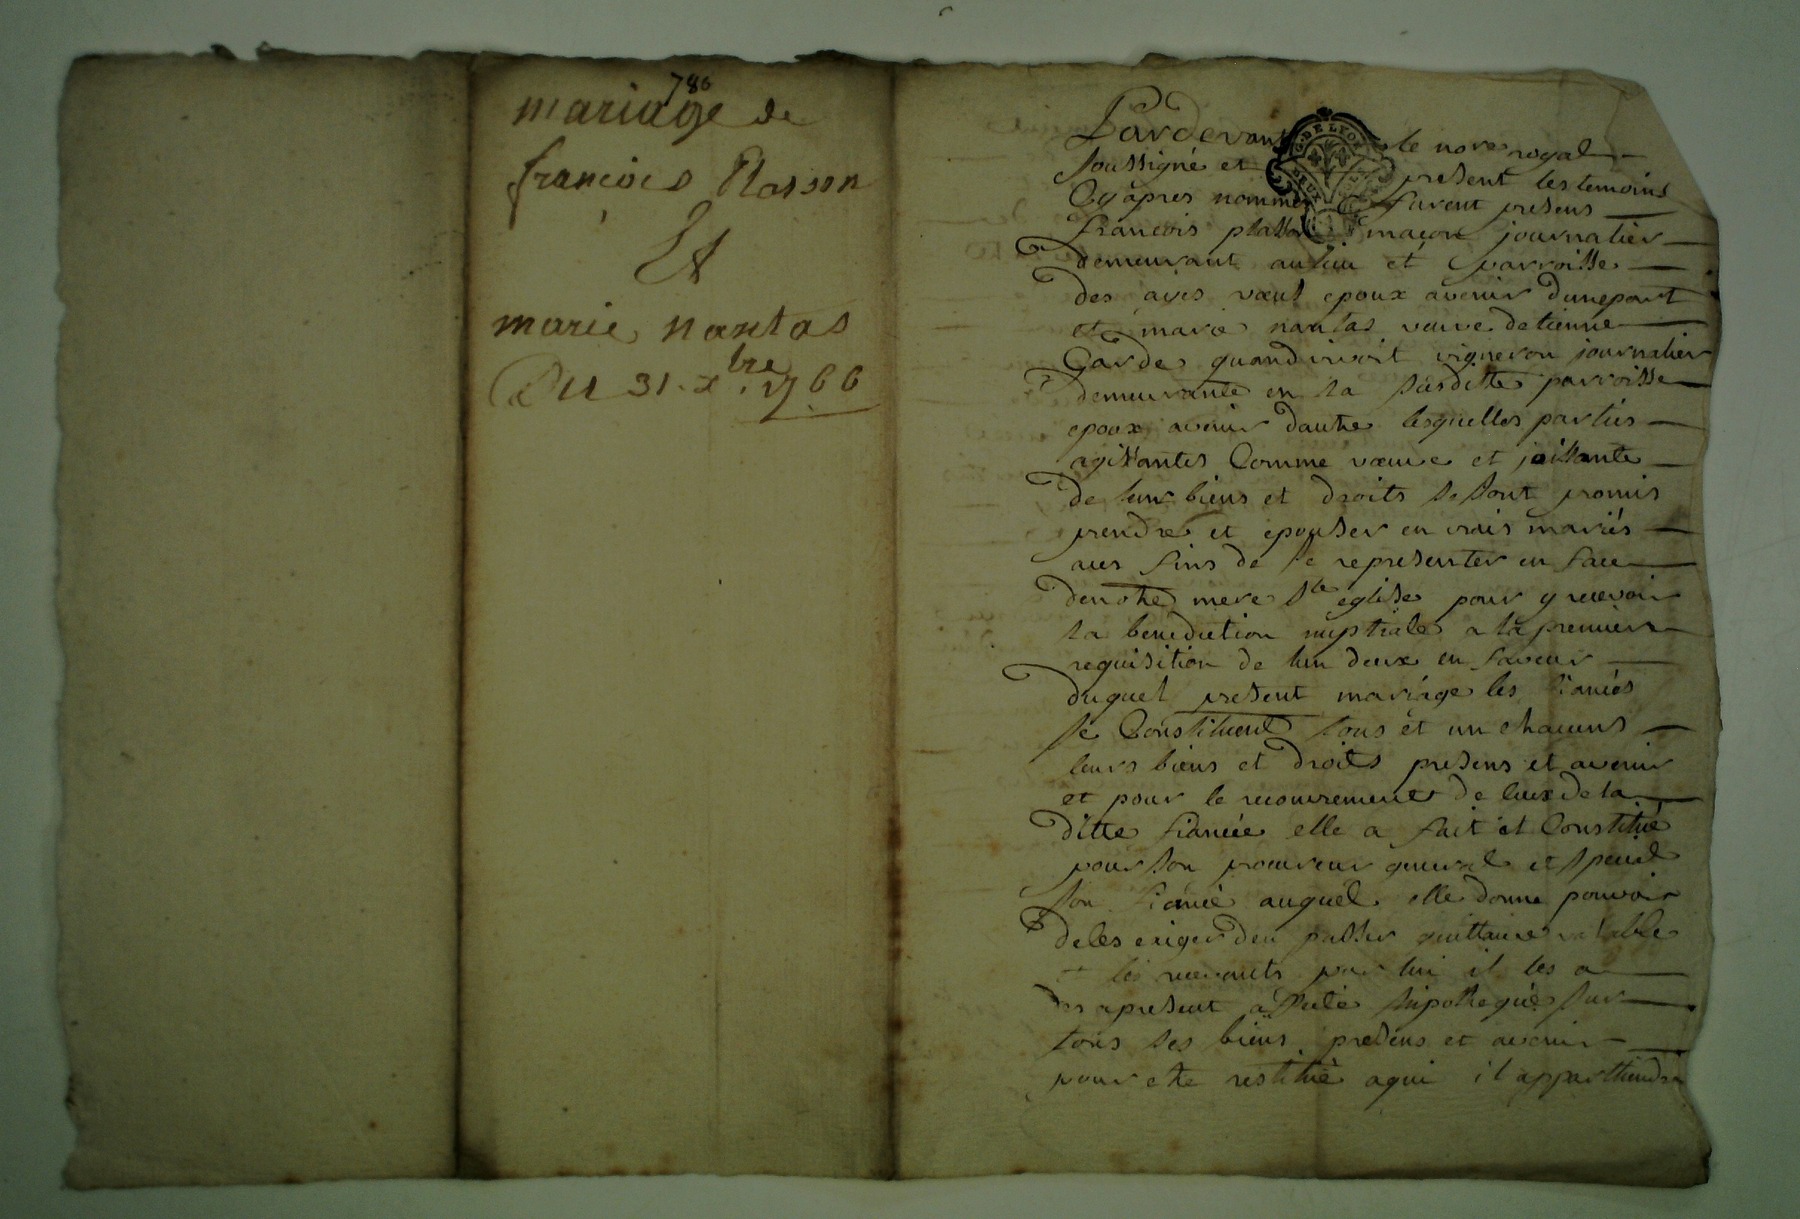 786
mariage de
françois Plasson
Et
marie nantas
Du 31. xbre. 1766
Pardevant le nore royal
soussigné et present les temoins
Cy apres nommes furent presens
françois plasson maçon journalier
demeurant au lieu et parroisse
des ayes vœuf epoux avenir dunepart
et marie nantas veuve detienne
Garde quandvivoit vigneron journalier
demeurante en la susditte parroisse
epoux avenir dautre lesquelles parties
agissantes Comme vœuve et joissante
de leur biens et droits se sont promis
prendre et epouser en vrais mariés
aux fins de se representer en face
denotre mere ste eglise pour y recevoir
la benediction nuptiale a la premiere
requisition de lun deux en faveur
duquel present mariage les fiancés
se Constituent tous et un chacuns
leurs biens et droits presens et avenir
et pour le recouvrement de ceux de la
ditte fiancée elle a fait et Constitué
pour son procureur general et special
son fiancé auquel elle donne pouvoir
deles exiger den passer quittance valable
et les recevants par lui il les a
des apresent affecté hipothequé sur
tous ses biens presens et avenir
pour etre restitué aqui il appartiendra
G. DE LYON
DEUX